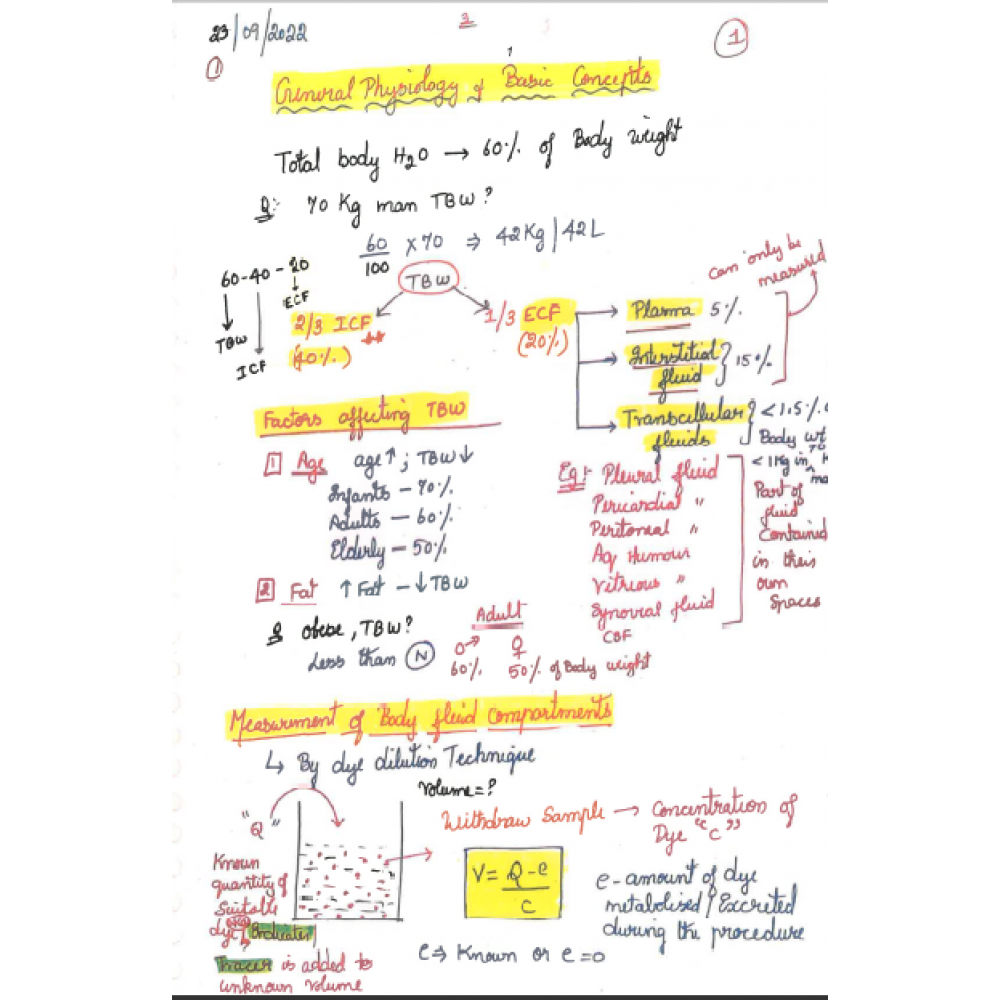 23/09/2022
3
1
1
General Physiology & Basic Concepts
Total body H2O → 60% of Body weight
Q: 70 Kg man TBW?
60/100 × 70 ⇒ 42Kg | 42L
60-40-20
TBW
ICF
ECF
TBW
2/3 ICF **
(40%)
1/3 ECF
(20%)
can only be measured
Plasma 5%
Interstitial fluid } 15%
Transcellular fluids } <1.5%
Body wt
<1Kg in 70
Eg:- Pleural fluid
Pericardial "
Peritoneal "
Aq Humour
Vitreous "
Synovial fluid
CBF
Part of
fluid
Contained
in their
own
Spaces
Factors affecting TBW
1 Age age↑; TBW↓
Infants - 70%
Adults - 60%
Elderly - 50%
2 Fat ↑Fat - ↓TBW
Q obese, TBW?
Less than N
Adult
♂ ♀
60% 50% of Body weight
Measurment of Body fluid compartments
↳ By dye dilution Technique
Volume=?
"Q"
Known
quantity of
Suitable
dye/Indicater/
Tracer is added to
unknown volume
Withdraw Sample → Concentration of
Dye "C"
V = Q-e
C
e-amount of dye
metabolised/Excreted
during the procedure
e⇒ Known or e=0